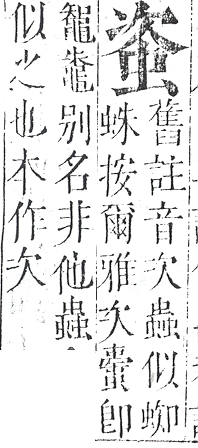 䖪
舊註音次蟲似蜘
蛛按爾雅次蟗卽
鼅鼄别名非他蟲
似之也本作次